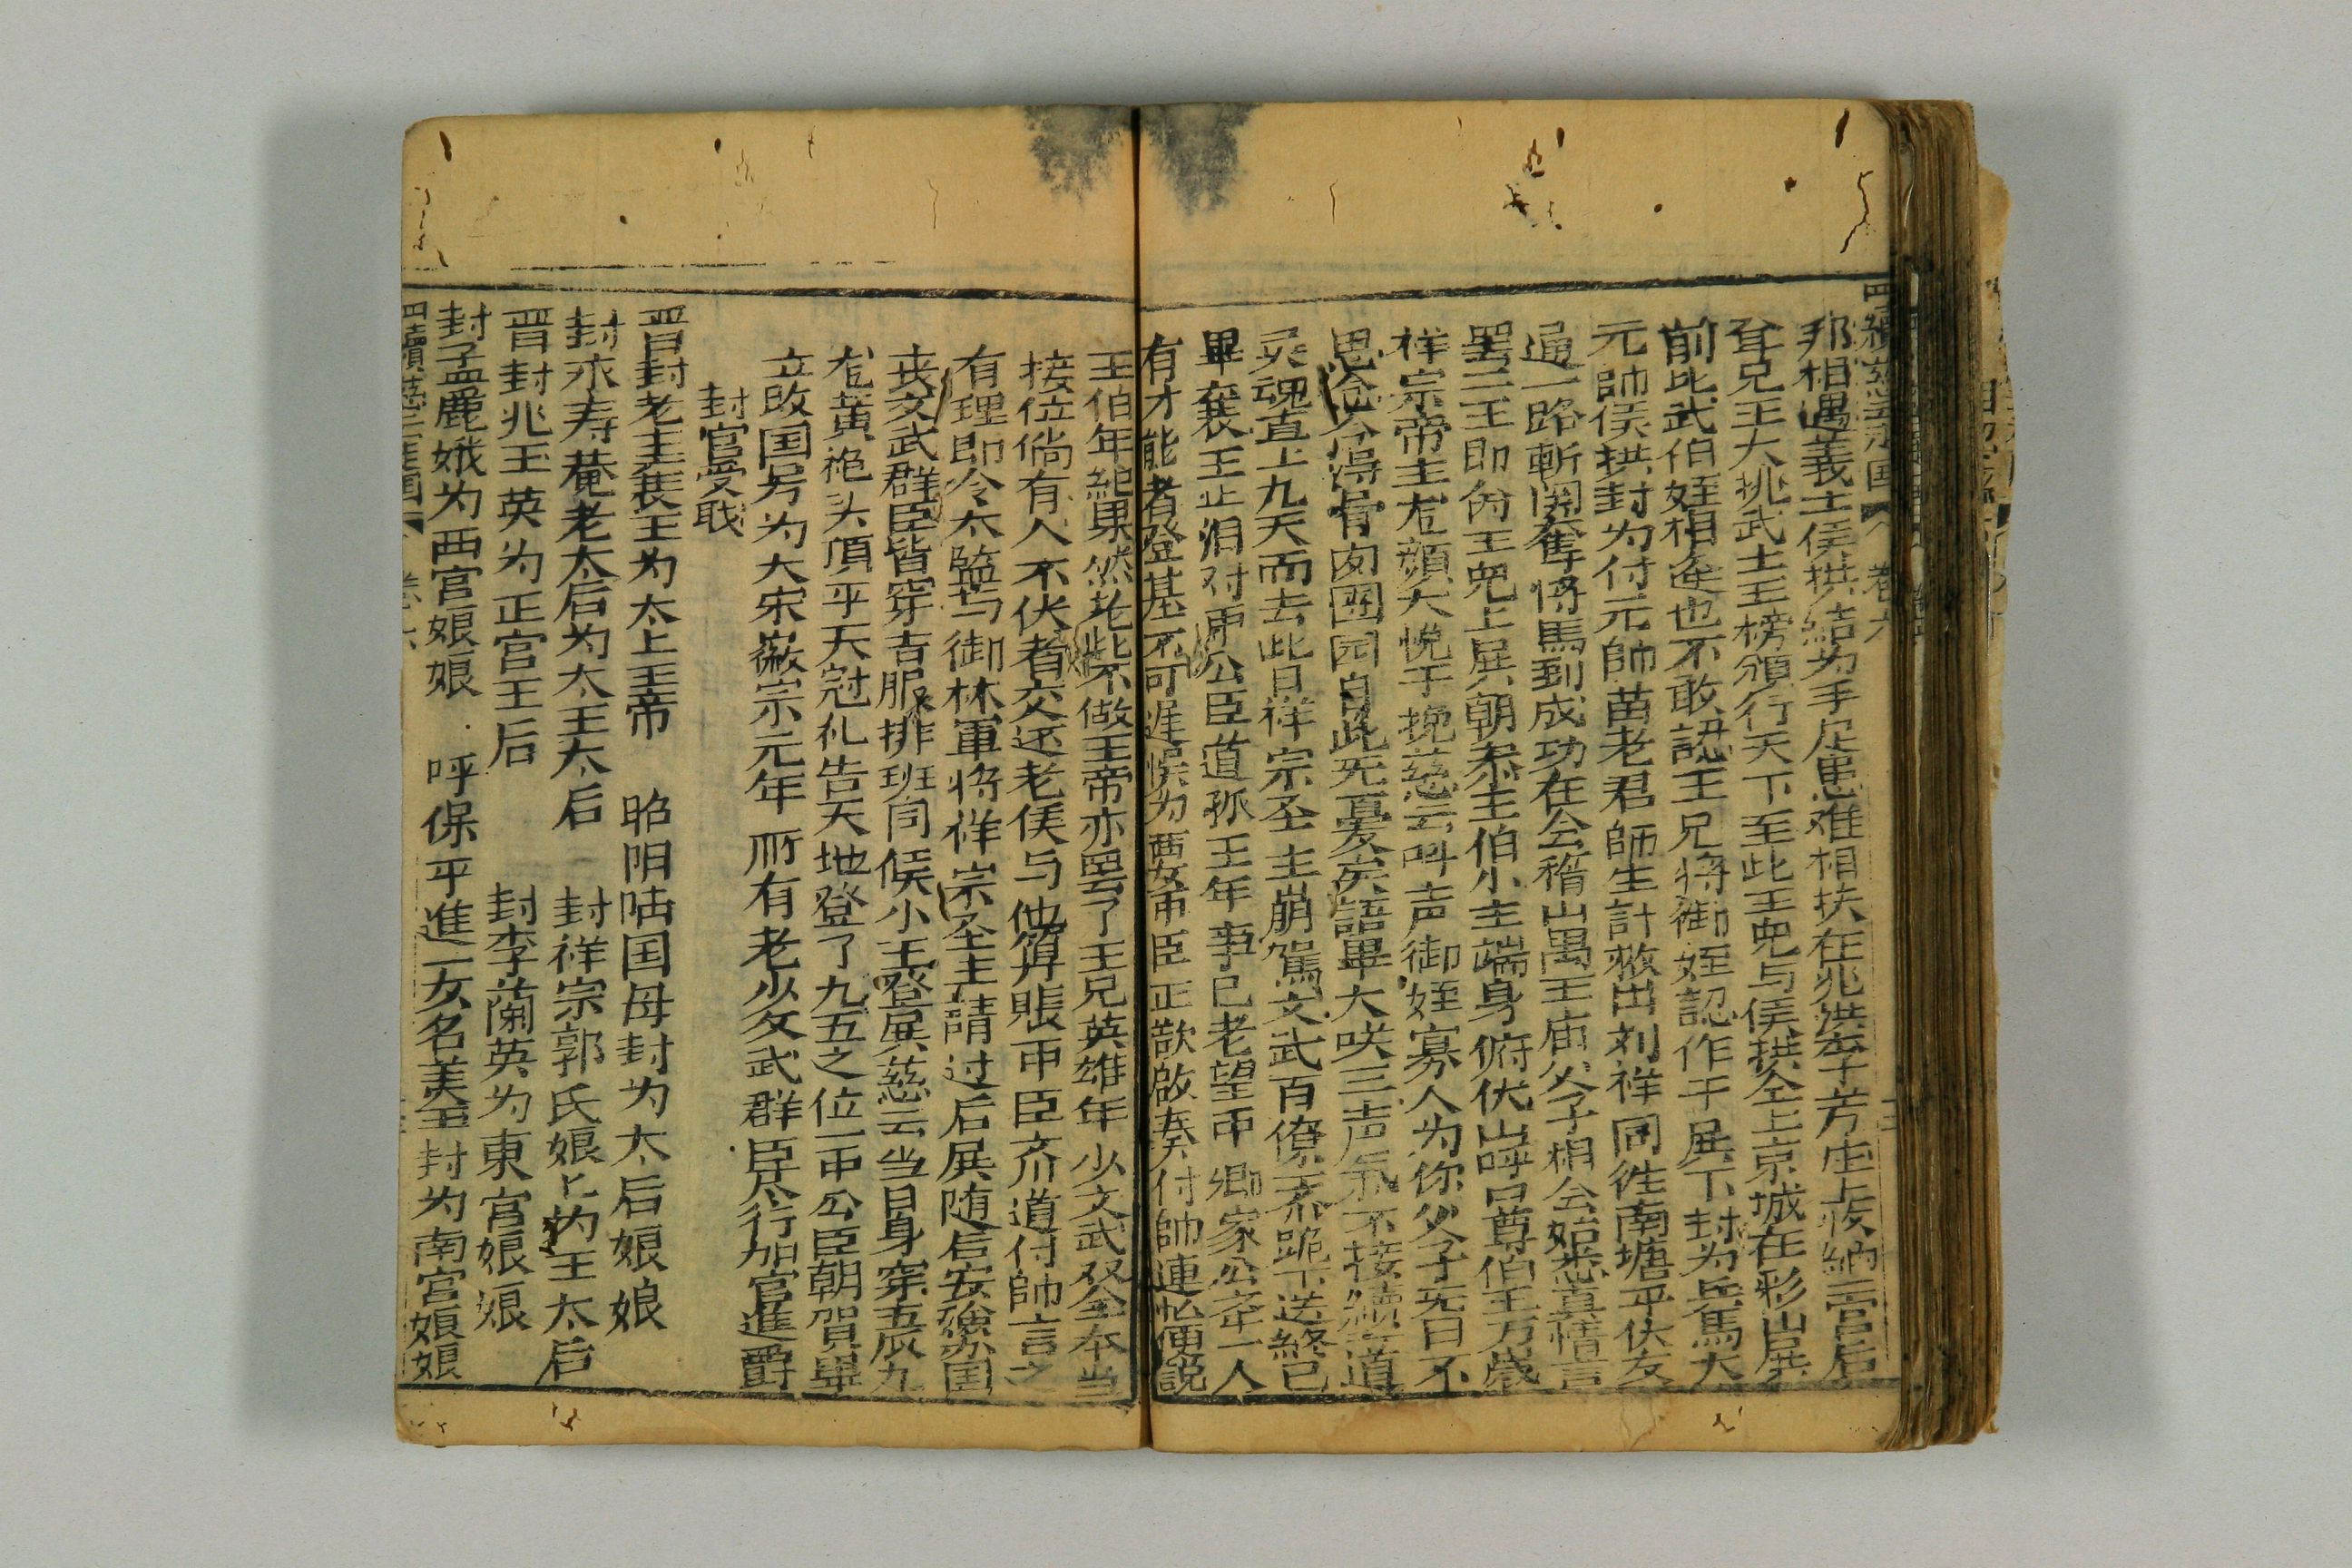 四續慈云走国 卷六
邦相遇義士侯拱結为手足患难相扶在兆洪李芳庄上板納二宫后
耳兄王大挑武士王榜頒行天下至此王兜与侯拱仝上京城在彩山展
前比武伯姪相逢也不敢認王兄將御姪認作干展下封为兵馬大
元帥侯拱封为付元帥苗老君師生計救出刘祥同徃南塘平伏友
通一路斬関奪將馬到成功在会稽山禹王庙父子相会始悉真情言
罢二王即的王兜上展朝叅主伯小主端身俯伏山呼曰尊伯王万歲
祥宗帝主尨顏大悦手挽慈云叫声御姪寡人为你父子旡日不
思念今得骨肉团园自此死憂矣語畢大咲三声氣不接續一道
灵魂直上九天而去此日祥宗圣主崩駕文武百僚齐跪下送終已
畢襄王止泪对甲公臣道孤王年事已老望甲卿家公立一人
有才能者登基不可遅悮为要甲臣正歆啟奏付帥連忙便説
王伯年紀果然老些不做王帝亦罢了王兄英雄年少文武双全本当
接位倘有人不伏者交还老侯与他算賬甲臣齐道付帥言之
有理即令太監与御林軍將祥宗圣主請过后展随后安殮国
丧文武群臣皆穿吉服排班同候小王登展慈云当日身穿五辰九
尨黄袍头頂平天冠礼告天地登了九五之位一甲公臣朝賀畢
立改国号为大宋嶶宗元年所有老少文武群臣尽行加官進爵
封官受戝
晋封老主襄王为太上王帝 昭阳咕国母封为太后娘娘
封永寿菴老太后为太王太后 封祥宗郭氏娘匕为王太后
晋封兆玉英为正宫王后 封李蘭英为東宫娘娘
封孟麗娥为西宫娘娘 呼保平進一女名美玉封为南宫娘娘
四續慈云走国 卷六